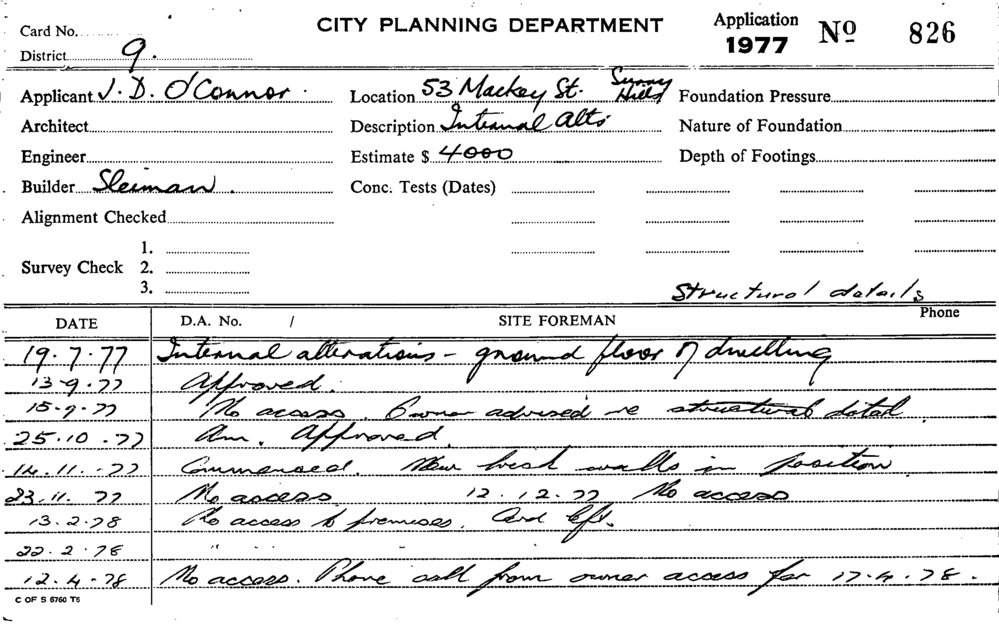 Card No. CITY PLANNING DEPARTMENT Application 1977 Nº 826
District 9.
Applicant J. D. O'Connor. Location 53 Mackey St. Surry Hills Foundation Pressure
Architect Description Internal Alts Nature of Foundation
Engineer Estimate $ 4000 Depth of Footings
Builder Sleiman. Conc. Tests (Dates)
Alignment Checked
1.
Survey Check 2.
3.
Structural details
DATE D.A. No. / SITE FOREMAN Phone
19.7.77 Internal alterations - ground floor of dwelling
13-9.77 Approved.
15.9.77 No access. Owner advised re structural detail
25.10.77 Am. Approved.
14.11.77 Commenced. New brick walls in position
23.11.77 No access 12.12.77 No access
13.2.78 No access to premises. Card left.
22.2.78 " " "
12.4.78 No access. Phone call from owner access for 17.4.78.
C OF S 6760 T6